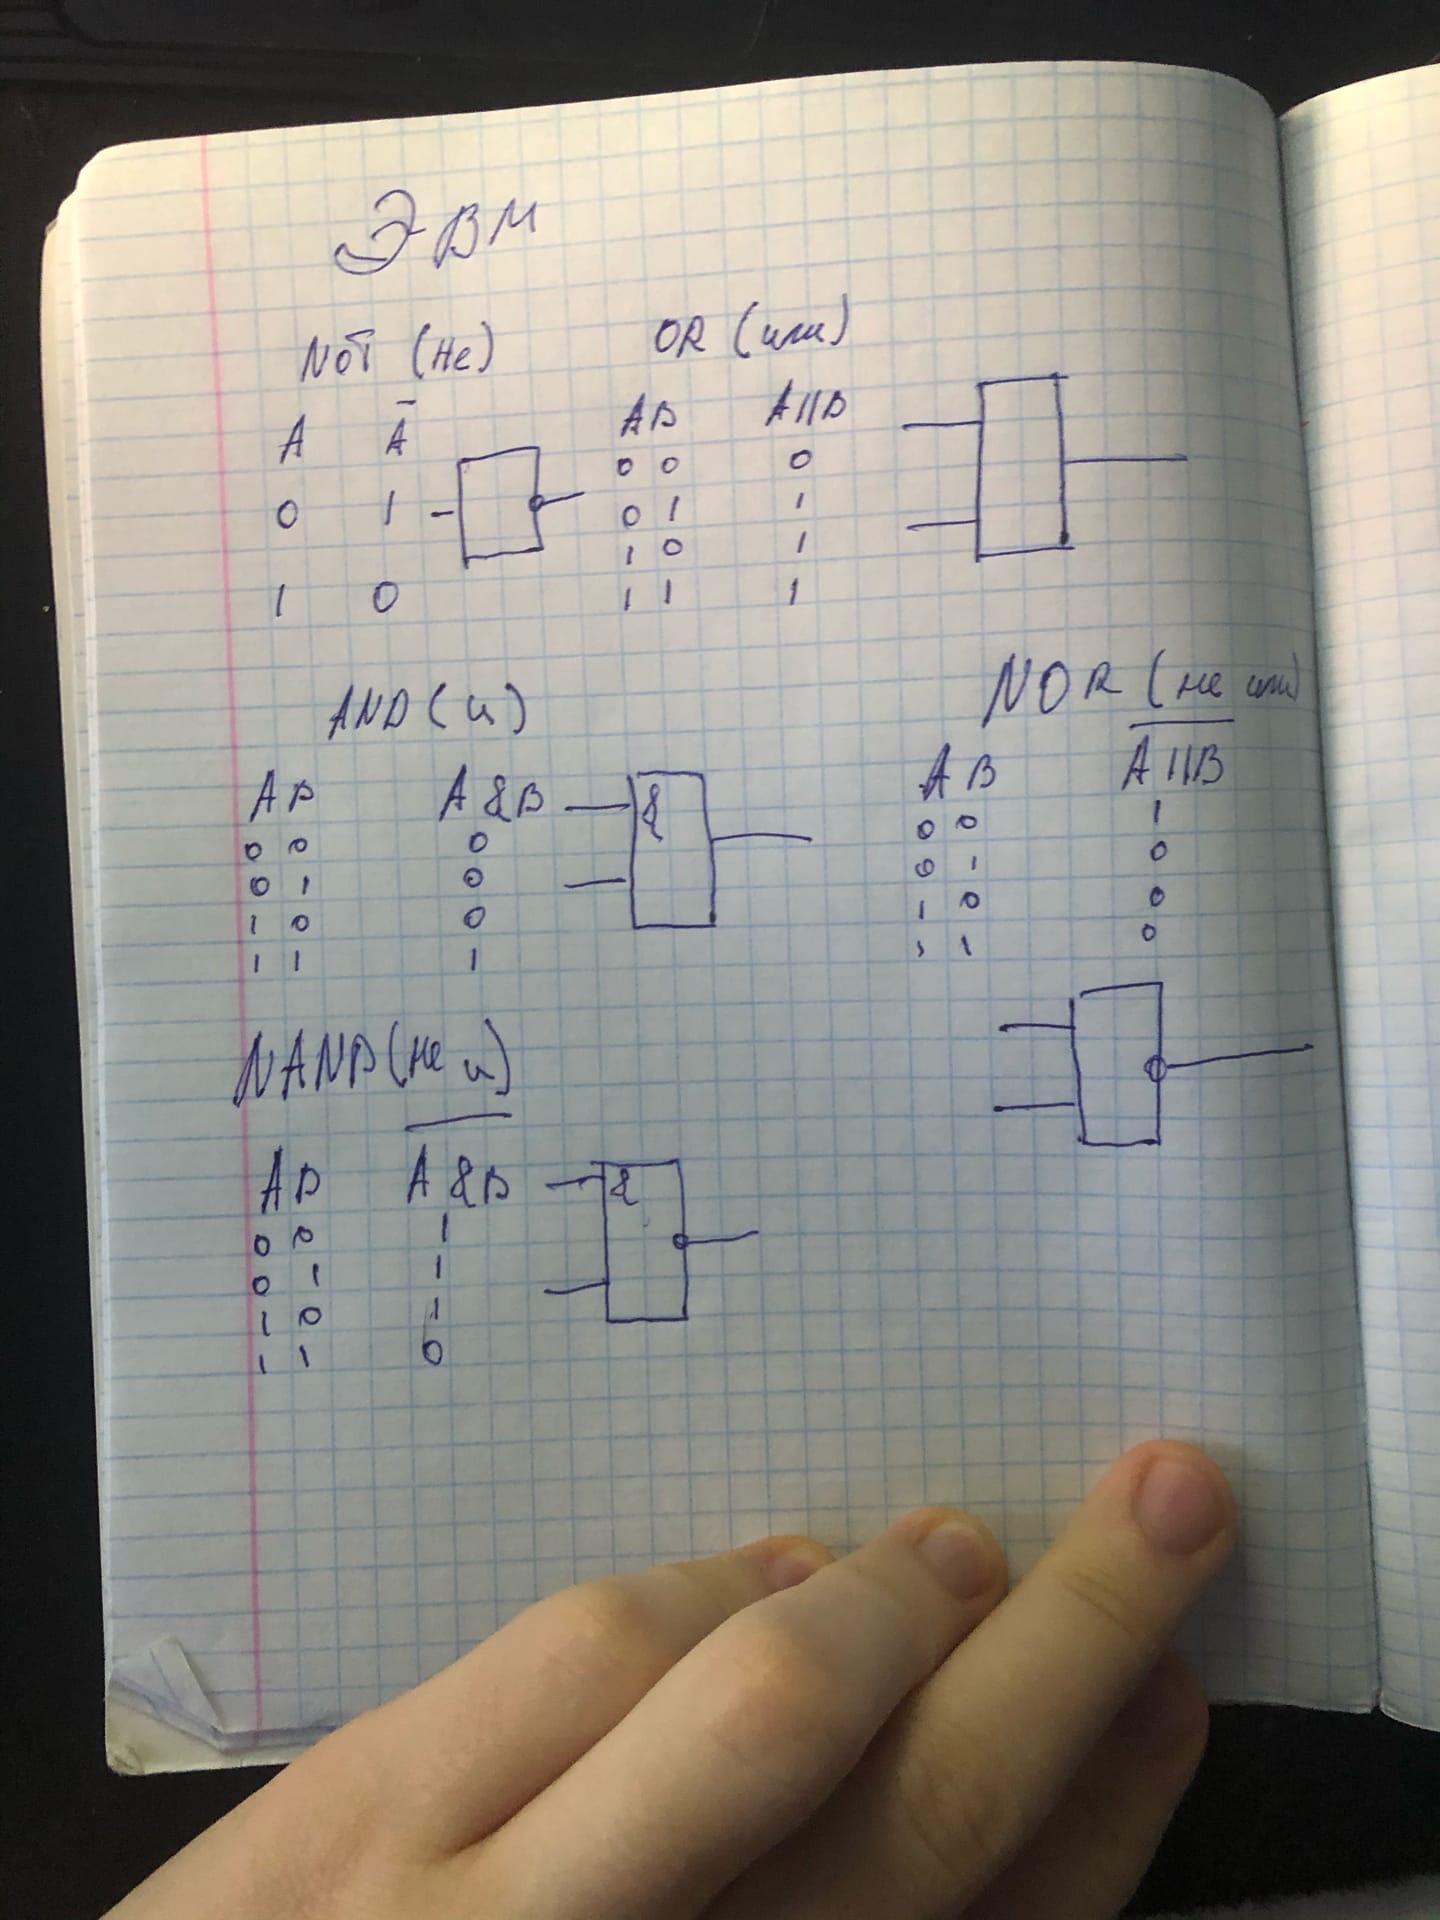 ЭВМ
NOT (не)
A Ā
0 1
1 0
OR (или)
A B A||B
0 0 0
0 1 1
1 0 1
1 1 1
AND (и)
A B A &B
0 0 0
0 1 0
1 0 0
1 1 1
&
NOR (не или)
A B A||B
0 0 1
0 1 0
1 0 0
1 1 0
NAND (не и)
A B A &B
0 0 1
0 1 1
1 0 1
1 1 0
&